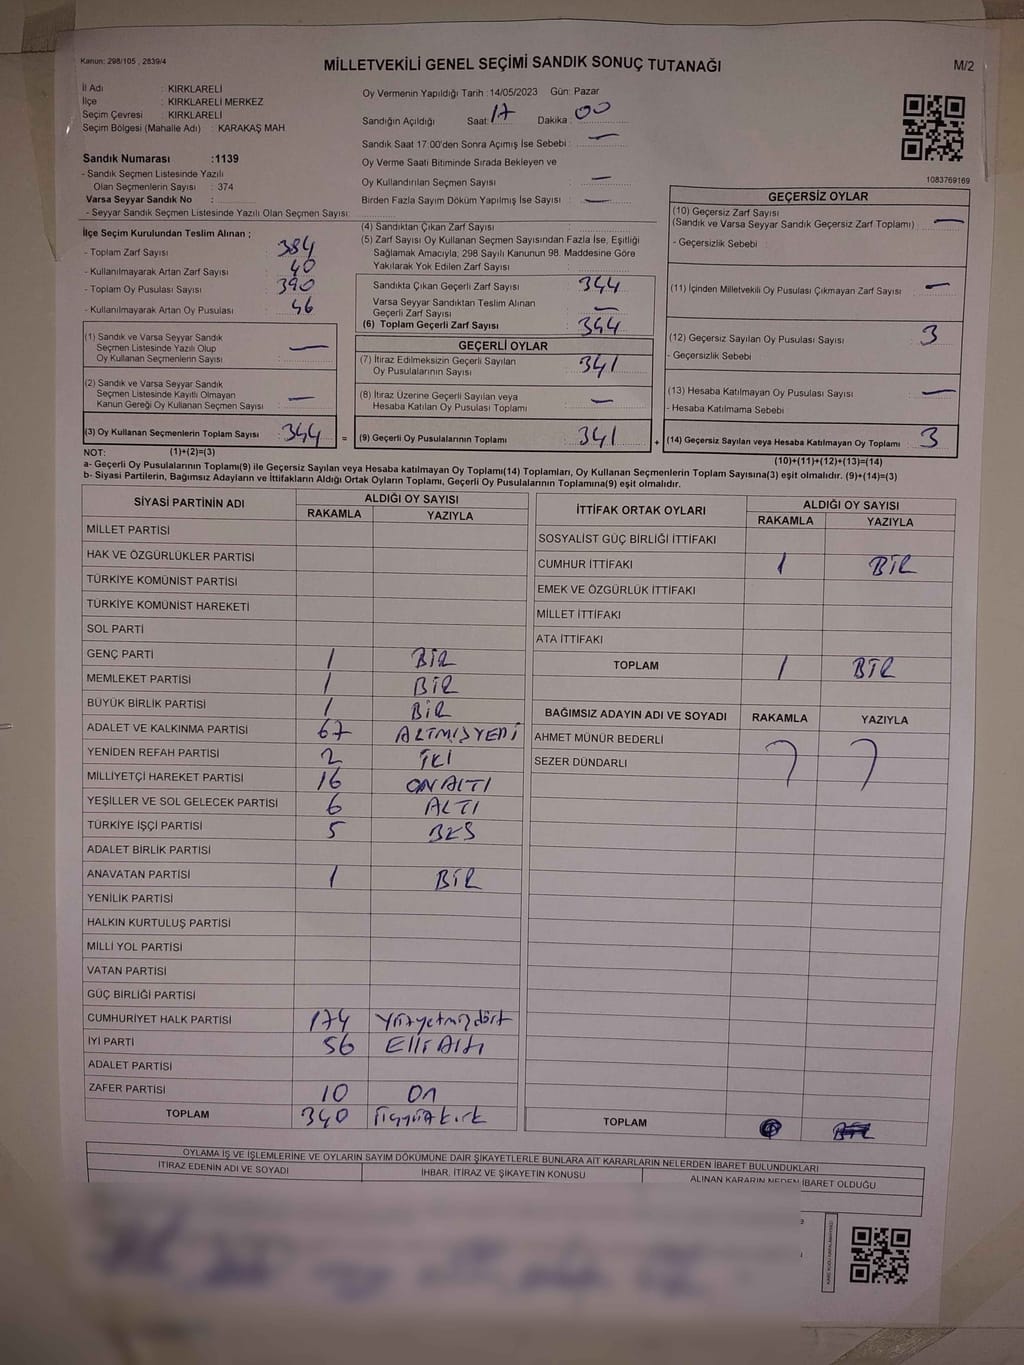 Kanun: 298/105 , 2839/4
MİLLETVEKİLİ GENEL SEÇİMİ SANDIK SONUÇ TUTANAĞI
M/2
İl Adı : KIRKLARELİ
İlçe : KIRKLARELİ MERKEZ
Seçim Çevresi : KIRKLARELİ
Seçim Bölgesi (Mahalle Adı) : KARAKAŞ MAH
Sandık Numarası :1139
- Sandık Seçmen Listesinde Yazılı
Olan Seçmenlerin Sayısı : 374
Varsa Seyyar Sandık No :
- Seyyar Sandık Seçmen Listesinde Yazılı Olan Seçmen Sayısı:
Oy Vermenin Yapıldığı Tarih :14/05/2023 Gün: Pazar
Sandığın Açıldığı Saat: 17 Dakika : 00
Sandık Saat 17.00'den Sonra Açımış İse Sebebi : —
Oy Verme Saati Bitiminde Sırada Bekleyen ve
Oy Kullandırılan Seçmen Sayısı : —
Birden Fazla Sayım Döküm Yapılmış İse Sayısı : —
1083769169
İlçe Seçim Kurulundan Teslim Alınan ;
- Toplam Zarf Sayısı : 384
- Kullanılmayarak Artan Zarf Sayısı : 40
- Toplam Oy Pusulası Sayısı : 390
- Kullanılmayarak Artan Oy Pusulası : 46
(1) Sandık ve Varsa Seyyar Sandık
Seçmen Listesinde Yazılı Olup
Oy Kullanan Seçmenlerin Sayısı : —
(2) Sandık ve Varsa Seyyar Sandık
Seçmen Listesinde Kayıtlı Olmayan
Kanun Gereği Oy Kullanan Seçmen Sayısı : —
(3) Oy Kullanan Seçmenlerin Toplam Sayısı : 344
(4) Sandıktan Çıkan Zarf Sayısı :
(5) Zarf Sayısı Oy Kullanan Seçmen Sayısından Fazla İse, Eşitliği
Sağlamak Amacıyla; 298 Sayılı Kanunun 98. Maddesine Göre
Yakılarak Yok Edilen Zarf Sayısı :
Sandıkta Çıkan Geçerli Zarf Sayısı : 344
Varsa Seyyar Sandıktan Teslim Alınan
Geçerli Zarf Sayısı : —
(6) Toplam Geçerli Zarf Sayısı : 344
GEÇERLİ OYLAR
(7) İtiraz Edilmeksizin Geçerli Sayılan
Oy Pusulalarının Sayısı : 341
(8) İtiraz Üzerine Geçerli Sayılan veya
Hesaba Katılan Oy Pusulası Toplamı : —
= (9) Geçerli Oy Pusulalarının Toplamı : 341
GEÇERSİZ OYLAR
(10) Geçersiz Zarf Sayısı
(Sandık ve Varsa Seyyar Sandık Geçersiz Zarf Toplamı) : —
- Geçersizlik Sebebi :
(11) İçinden Milletvekili Oy Pusulası Çıkmayan Zarf Sayısı : —
(12) Geçersiz Sayılan Oy Pusulası Sayısı : 3
- Geçersizlik Sebebi :
(13) Hesaba Katılmayan Oy Pusulası Sayısı : —
- Hesaba Katılmama Sebebi :
+ (14) Geçersiz Sayılan veya Hesaba Katılmayan Oy Toplamı : 3
NOT: (1)+(2)=(3)
(10)+(11)+(12)+(13)=(14)
a- Geçerli Oy Pusulalarının Toplamı(9) ile Geçersiz Sayılan veya Hesaba katılmayan Oy Toplamı(14) Toplamları, Oy Kullanan Seçmenlerin Toplam Sayısına(3) eşit olmalıdır. (9)+(14)=(3)
b- Siyasi Partilerin, Bağımsız Adayların ve İttifakların Aldığı Ortak Oyların Toplamı, Geçerli Oy Pusulalarının Toplamına(9) eşit olmalıdır.
SİYASİ PARTİNİN ADI ALDIĞI OY SAYISI
RAKAMLA YAZIYLA
MİLLET PARTİSİ
HAK VE ÖZGÜRLÜKLER PARTİSİ
TÜRKİYE KOMÜNİST PARTİSİ
TÜRKİYE KOMÜNİST HAREKETİ
SOL PARTİ
GENÇ PARTİ 1 BİR
MEMLEKET PARTİSİ 1 BİR
BÜYÜK BİRLİK PARTİSİ 1 BİR
ADALET VE KALKINMA PARTİSİ 67 ALTMIŞYEDİ
YENİDEN REFAH PARTİSİ 2 İKİ
MİLLİYETÇİ HAREKET PARTİSİ 16 ONALTI
YEŞİLLER VE SOL GELECEK PARTİSİ 6 ALTI
TÜRKİYE İŞÇİ PARTİSİ 5 BEŞ
ADALET BİRLİK PARTİSİ
ANAVATAN PARTİSİ 1 BİR
YENİLİK PARTİSİ
HALKIN KURTULUŞ PARTİSİ
MİLLİ YOL PARTİSİ
VATAN PARTİSİ
GÜÇ BİRLİĞİ PARTİSİ
CUMHURİYET HALK PARTİSİ 174 Yüzyetmişdört
İYİ PARTİ 56 EllİAltı
ADALET PARTİSİ
ZAFER PARTİSİ 10 On
TOPLAM 340 Üçyüzkırk
İTTİFAK ORTAK OYLARI ALDIĞI OY SAYISI
RAKAMLA YAZIYLA
SOSYALİST GÜÇ BİRLİĞİ İTTİFAKI
CUMHUR İTTİFAKI 1 BİR
EMEK VE ÖZGÜRLÜK İTTİFAKI
MİLLET İTTİFAKI
ATA İTTİFAKI
TOPLAM 1 BİR
BAĞIMSIZ ADAYIN ADI VE SOYADI RAKAMLA YAZIYLA
AHMET MÜNÜR BEDERLİ
SEZER DÜNDARLI
TOPLAM
OYLAMA İŞ VE İŞLEMLERİNE VE OYLARIN SAYIM DÖKÜMÜNE DAİR ŞİKAYETLERLE BUNLARA AİT KARARLARIN NELERDEN İBARET BULUNDUKLARI
İTİRAZ EDENİN ADI VE SOYADI İHBAR, İTİRAZ VE ŞİKAYETİN KONUSU ALINAN KARARIN NEDEN İBARET OLDUĞU